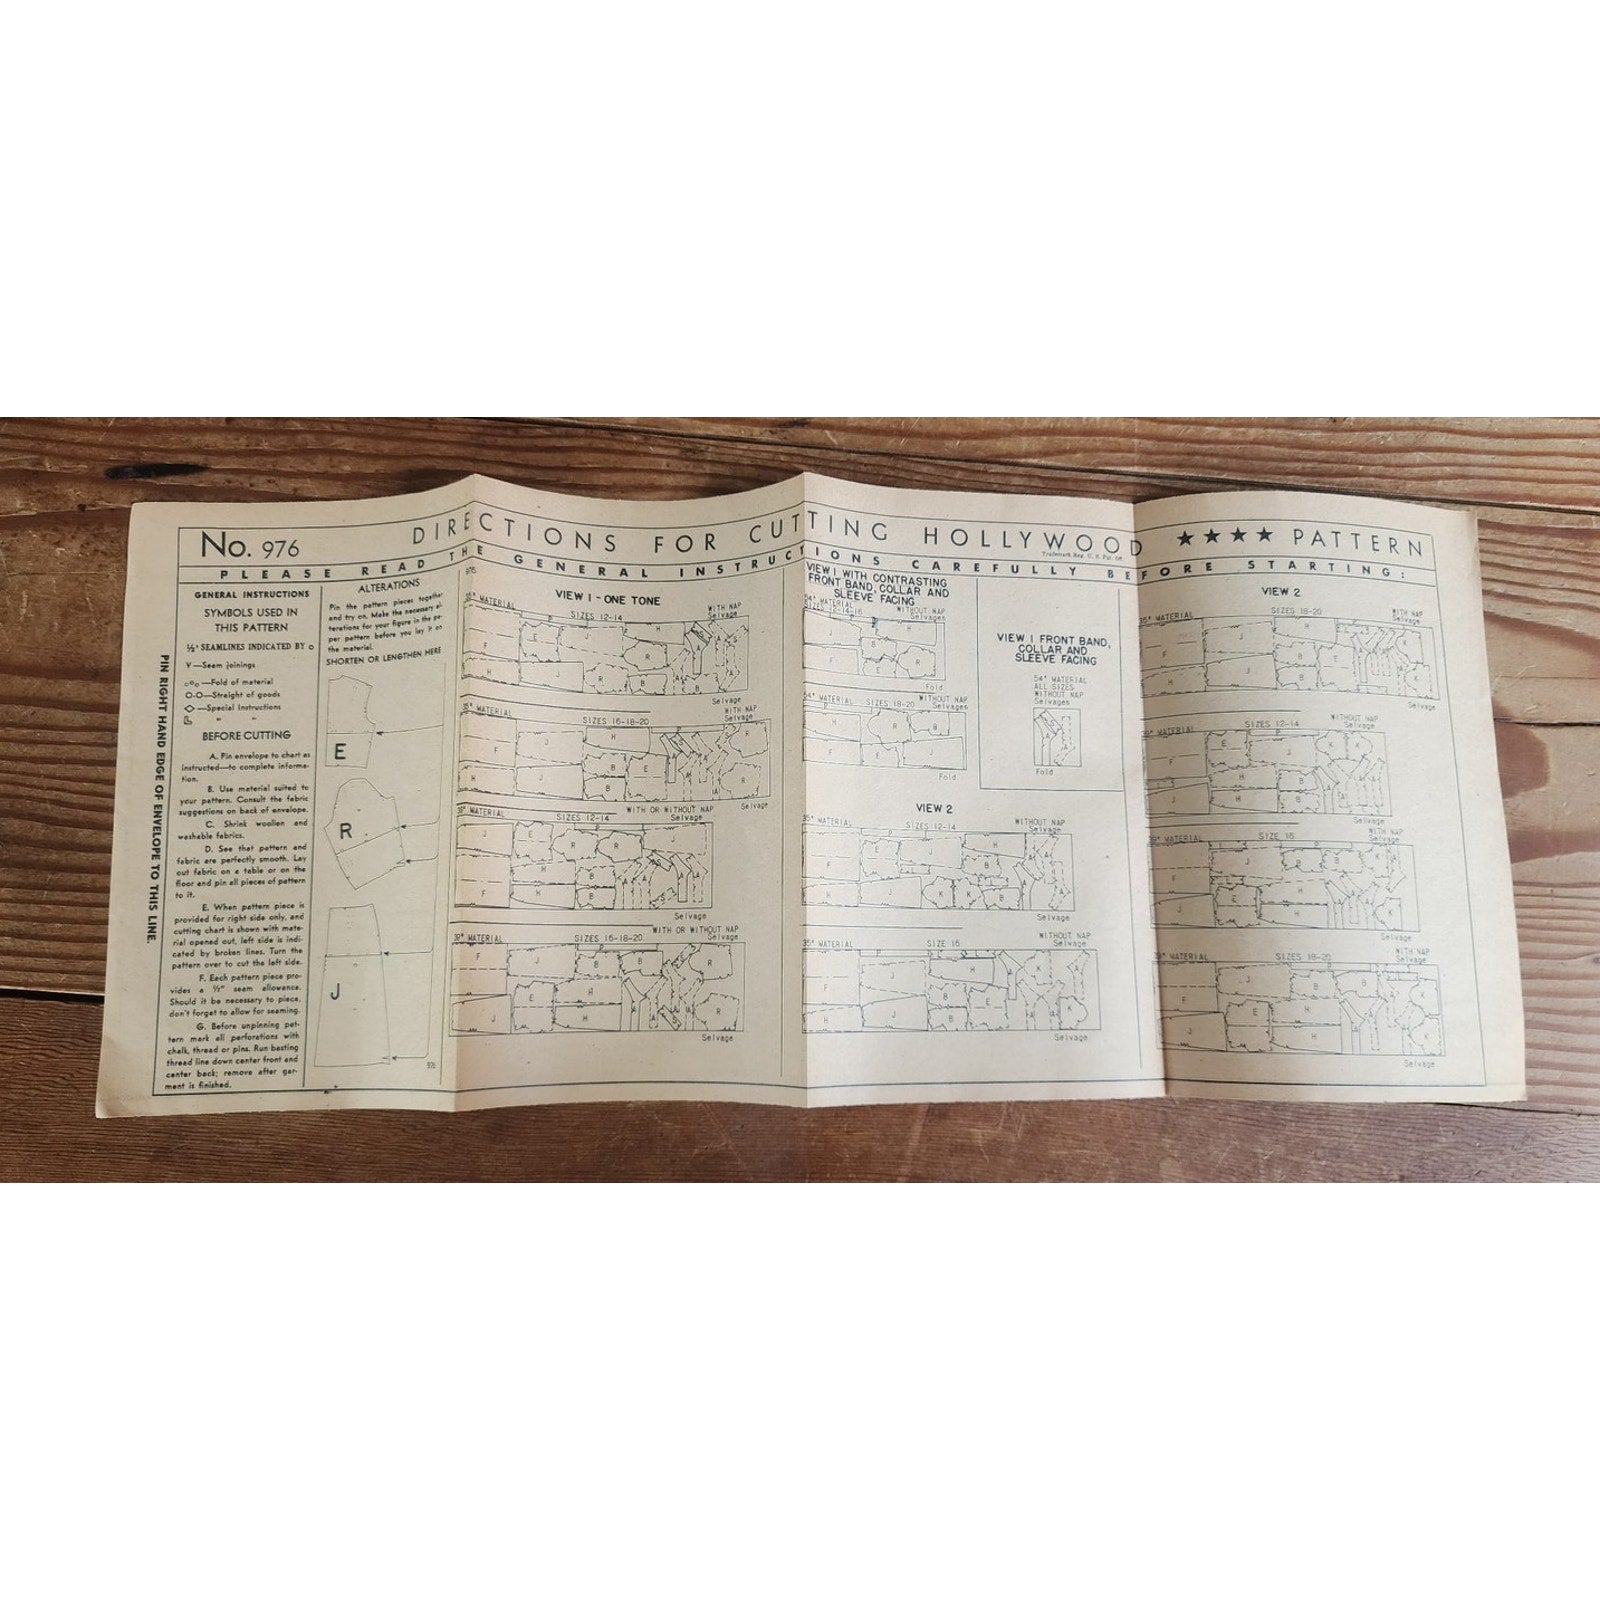 No. 976
DIRECTIONS FOR CUTTING HOLLYWOOD ★★★★ PATTERN
Trademark Reg. U. S. Pat. Off.
PLEASE READ THE GENERAL INSTRUCTIONS CAREFULLY BEFORE STARTING:
PIN RIGHT HAND EDGE OF ENVELOPE TO THIS LINE.
GENERAL INSTRUCTIONS
SYMBOLS USED IN
THIS PATTERN
½" SEAMLINES INDICATED BY o
V—Seam joinings
—Fold of material
O-O—Straight of goods
◇—Special Instructions
" "
BEFORE CUTTING
A. Pin envelope to chart as
instructed—to complete informa-
tion.
B. Use material suited to
your pattern. Consult the fabric
suggestions on back of envelope.
C. Shrink woollen and
washable fabrics.
D. See that pattern and
fabric are perfectly smooth. Lay
out fabric on a table or on the
floor and pin all pieces of pattern
to it.
E. When pattern piece is
provided for right side only, and
cutting chart is shown with mate-
rial opened out, left side is indi-
cated by broken lines. Turn the
pattern over to cut the left side.
F. Each pattern piece pro-
vides a ½" seam allowance.
Should it be necessary to piece,
don't forget to allow for seaming.
G. Before unpinning pat-
tern mark all perforations with
chalk, thread or pins. Run basting
thread line down center front and
center back; remove after gar-
ment is finished.
ALTERATIONS
Pin the pattern pieces together
and try on. Make the necessary al-
terations for your figure in the pa-
per pattern before you lay it on
the material.
SHORTEN OR LENGTHEN HERE
E
R
J
976
976
VIEW I - ONE TONE
35" MATERIAL SIZES 12-14 WITH NAP
Selvage
Selvage
35" MATERIAL SIZES 16-18-20 WITH NAP
Selvage
Selvage
39" MATERIAL SIZES 12-14 WITH OR WITHOUT NAP
Selvage
Selvage
39" MATERIAL SIZES 16-18-20 WITH OR WITHOUT NAP
Selvage
Selvage
VIEW I WITH CONTRASTING
FRONT BAND, COLLAR AND
SLEEVE FACING
54" MATERIAL
SIZES 12-14-16
WITHOUT NAP
Selvages
Fold
54" MATERIAL SIZES 18-20 WITHOUT NAP
Selvages
Fold
VIEW I FRONT BAND,
COLLAR AND
SLEEVE FACING
54" MATERIAL
ALL SIZES
WITHOUT NAP
Selvages
Fold
VIEW 2
35" MATERIAL SIZES 12-14 WITHOUT NAP
Selvage
Selvage
35" MATERIAL SIZE 16 WITHOUT NAP
Selvage
Selvage
VIEW 2
35" MATERIAL SIZES 18-20 WITH NAP
Selvage
Selvage
MATERIAL SIZES 12-14 WITHOUT NAP
Selvage
Selvage
39" MATERIAL SIZE 16 WITH NAP
Selvage
Selvage
39" MATERIAL SIZES 18-20 WITH NAP
Selvage
Selvage